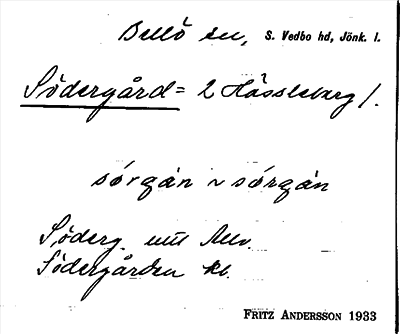 Bellö sn, S. Vedbo hd, Jönk. l.
Södergård = 2 Hässleberg /.
sórgán ~ sórgán
Söderg. utt Allv.
Södergården kb.
FRITZ ANDERSSON 1933